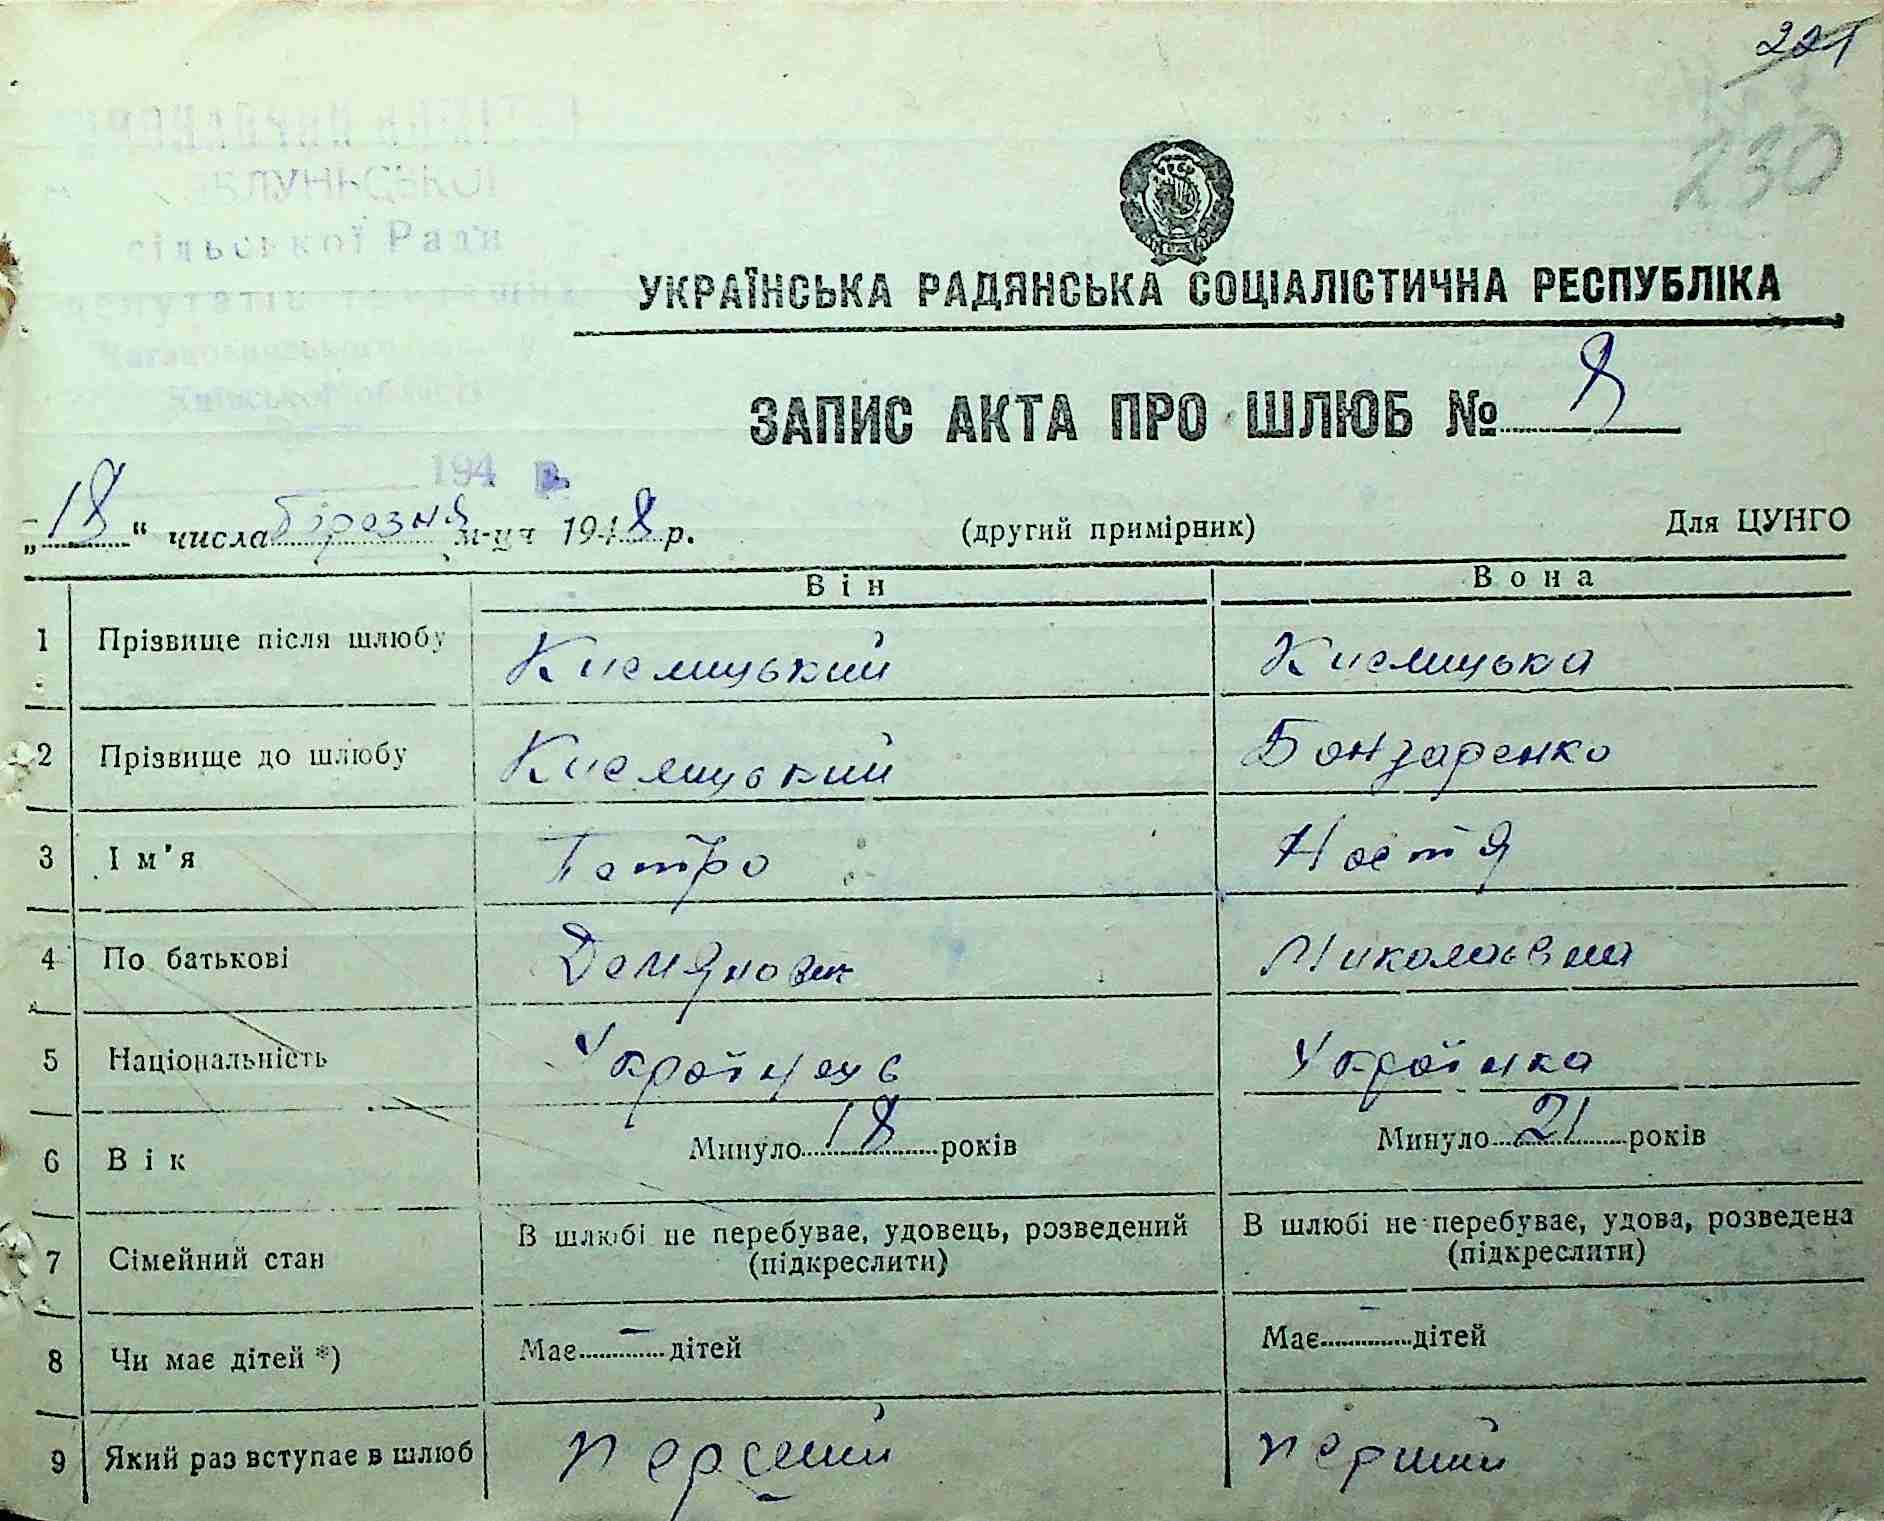 221
230
БЛУНЬСЬКОЇ
сільської Ради
депутатів трудящих
Київської області
194 р.
УКРАЇНСЬКА РАДЯНСЬКА СОЦІАЛІСТИЧНА РЕСПУБЛІКА
ЗАПИС АКТА ПРО ШЛЮБ № 8
„18“ числа бірезня м-ця 1948 р. (другий примірник) Для ЦУНГО
Він Вона
1 Прізвище після шлюбу Кислицький Кислицька
2 Прізвище до шлюбу Кислицький Бондаренко
3 Ім'я Петро Настя
4 По батькові Демянович Миколаівна
5 Національність Українець Українка
6 Вік Минуло 18 років Минуло 21 років
7 Сімейний стан В шлюбі не перебуває, удовець, розведений В шлюбі не перебуває, удова, розведена
(підкреслити) (підкреслити)
8 Чи має дітей *) Має - дітей Має - дітей
9 Який раз вступає в шлюб перший перший